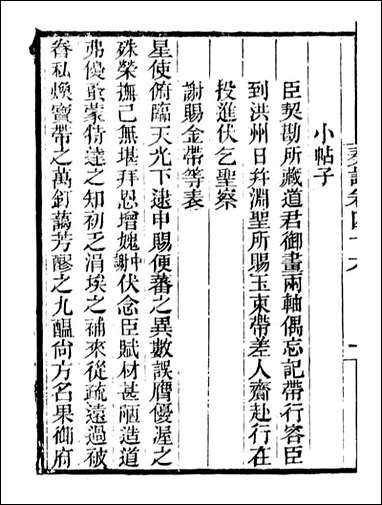 小帖子
臣契勘所藏道君御畫兩軸偶忘記帶行容臣
到洪州日幷淵聖所賜玉束帶差人齎赴行在
投進伏乞聖察
謝賜金帶等表
星使俯臨天光下逮申賜便蕃之異數誤膺優渥之
殊榮撫己無堪拜恩增媿中謝伏念臣賦材甚陋造道
弗優亟蒙倚達之知初乏涓埃之補來從疏遠過被
眷私煥寶帶之萬釘藹芳醪之九醞尙方名果御府